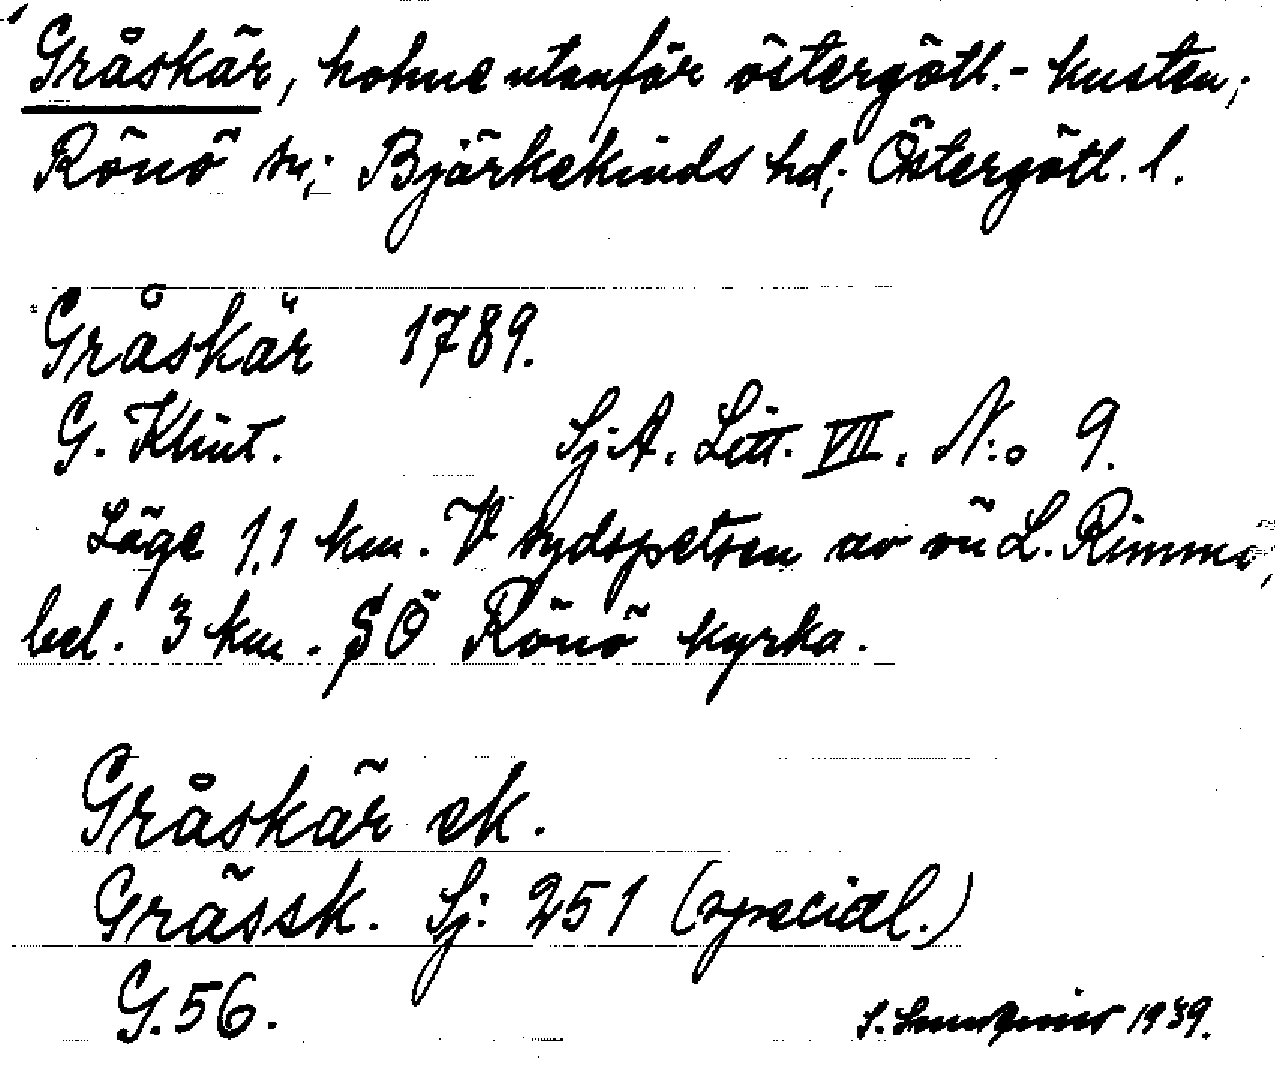 Gråskär, holme utanför östergötl.- kusten;
Rönö sn; Björkekinds hd; Östergötl. l.
Gråskär 1789.
G. Klint. Sj.A. Litt. VII. N:o 9.
Läge 1,1 km. V sydspetsen av ön L. Rimmö,
bel. 3 km. SÖ Rönö kyrka.
Gråskär ek.
Grässk. Sj: 251 (special.)
G.56.
S. 1939.